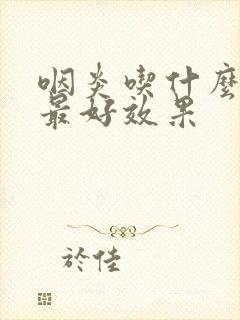 咽炎喫什麼
最好效果
於佳